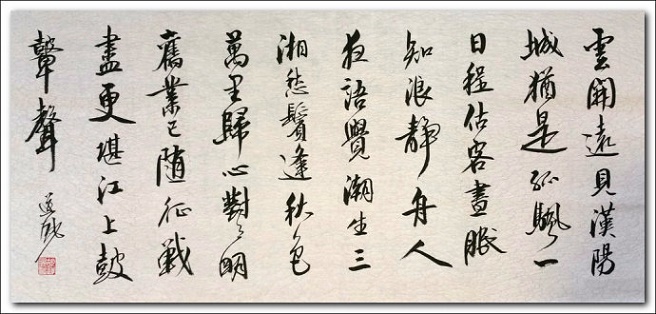 雲開遠見漢陽
城猶是孤颿一
日程估客晝眠
知浪靜舟人
夜語覺潮生三
湘愁鬢逢秋色
萬里歸心對月明
舊業已随征戰
盡更堪江上鼓
鼙聲